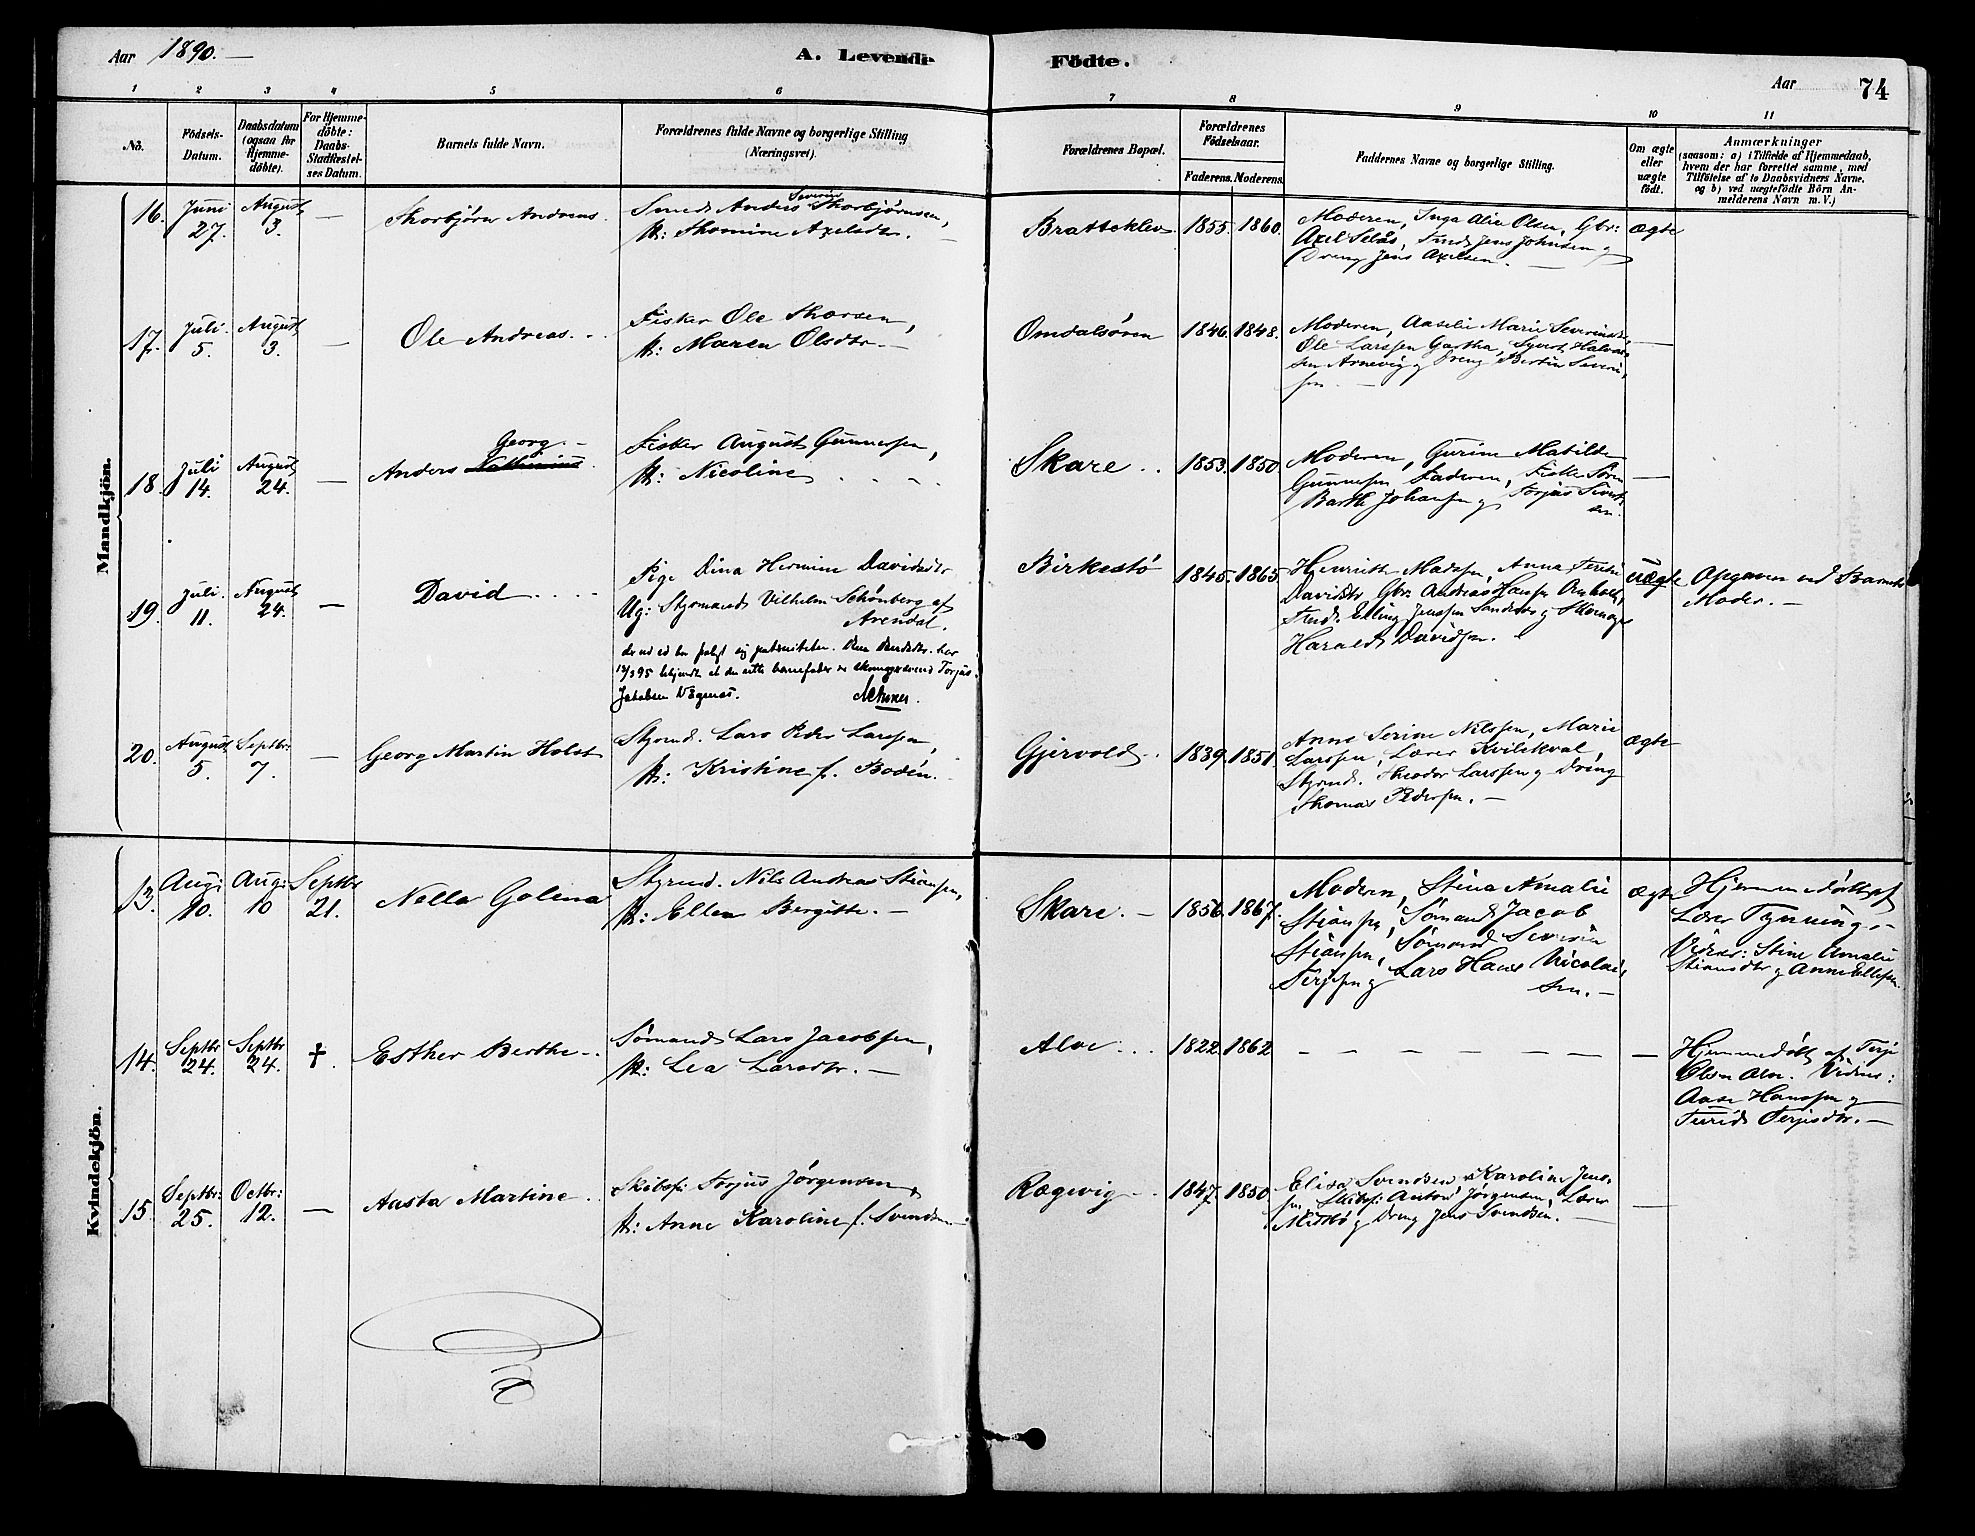 Aar 1890. —
A. Levende Födte.
Aar 74
1 2 3 4 5 6 7 8 9 10 11
No.
Födsels-Datum.
Daabsdatum (ogsaa for Hjemme-döbte).
For Hjemme-döbte: Daabs-Stadfæstel-ses Datum.
Barnets fulde Navn.
Forældrenes fulde Navne og borgerlige Stilling (Næringsvei).
Forældrenes Bopæl.
Forældrenes Födselsaar.
Faderens. Moderens.
Faddernes Navne og borgerlige Stilling.
Om ægte eller uægte födt.
Anmærkninger
(saasom: a) i Tilfælde af Hjemmedaab,
hvem der har forrettet samme, med
Tilföielse af to Daabsvidners Navne,
og b) ved uægtefödte Börn An-
melderens Navn m. V.)
Mandkjön.
16. Juni 27. August 3. — Thorbjörn Andreas.
Smed Anders Severin Thorbjörnsen,
H: Thomine Axelsdtr. —
Bratteklev 1855. 1860.
Moderen, Inga Alie Olsen, Gbr:
Axel Selås, Jens Johnsen og
Dreng Jens Axelsen. —
ægte
17. Juli 5. August 3. — Ole Andreas.
Fisker Ole Thorsen,
H: Maren Olsdtr. —
Omdalsören 1846. 1848.
Moderen, Aaselie Marie
Ole Larssen Gartha, Syvert Halvor-
sen Arnevig og Dreng Bertin Severin-
sen. —
—
18. Juli 14. August 24. — Anders Georg. —
Fisker August Gunnersen,
H: Nicoline
Skare 1853. 1850.
Moderen, Gurine Matilde
Gunnersen Faderen, Sören
Barth Johansen og Torjus Sivert-
sen.
—
19. Juli 11. August 24. — David
Pige Dina Hermine Davidsdtr
Ug: Styrmand Vilhelm Schönberg af
Arendal.
Torjus
Jakobsen
Birkestö 1845. 1865.
Henriette Madsen, Anna
Davidsdtr Gbr. Andreas Hansen
Elling Jenssen og
Harald Davidsen.
uægte
Opgaven ved Barnets
Moder. —
20. August 5. Septbr: 7. — Georg Martin Holst
Styrmd. Lars Peder Larssen,
H: Kristine f. Bodén.
Gjervold 1839. 1851.
Anne Serine Nilssen, Marie
Larssen, Lærer Kvilekval,
Styrmd. Theodor Larssen og Dreng
Thomas Pedersen. —
ægte
Kvindekjön.
13. Aug: 10. Aug: 10 Septbr 21. Nella Galena
Styrmd. Nils Andreas Stiansen,
H: Ellen Bergitte. —
Skare. — 1856. 1867.
Moderen, Stina Amalie
Stiansen, Sömand Jacob
Stiansen, Sömand Severin
Terjesen og Lars Hans Nicolai-
sen. —
ægte
Hjemmedöbt af
Lærer Tynning. —
Vidner: Stine Amalie
Stiansdtr og Anne Ellefsen.
14. Septbr 24. Septbr 24. †. Esther Berthe. —
Sömand Lars Jacobsen,
H: Lea Larsdtr. —
Alve 1822. 1862
— — — — — — — —
Hjemmedöbt af Terje
Olsen Alve. Vidner:
Aase Hanssen og
Turid Terjesdtr. —
15. Septbr: 25. Octbr: 12. — Aasta Martine
Skibsf: Torjus Jörgensen,
H: Anne Karoline f. Svendsen
Rægevig 1847. 1850.
Elisa Svendsen, Karoline Jens-
sen, Skibsf: Anton Jörgensen, Lærer
Mitbö og Dreng Jens Svendsen. —
—